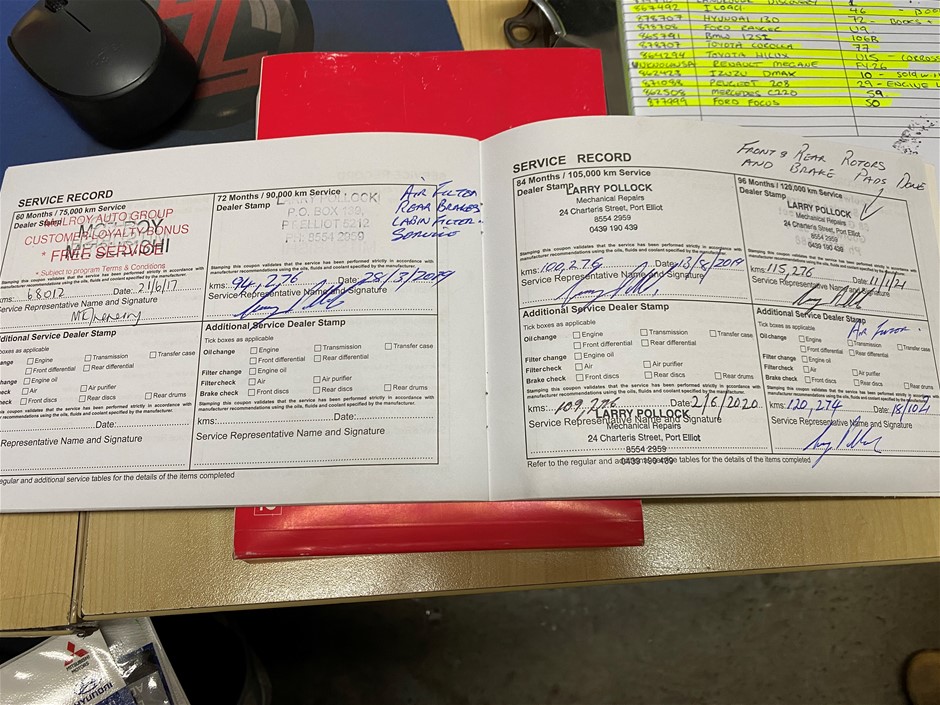 867492
878707 HYUNDAI I30 72 - BOOKS +
878708 FORD RANGER U9
865791 BMW 125I 106R
878707 TOYOTA COROLLA 77
864294 TOYOTA HILUX U15 - CORROS
RENAULT MEGANE FY26
862423 IZUZU DMAX 10 - SOLD W
871098 PEUGEOT 208 29 - ENGINE L
862508 MERCEDES C220 59
877999 FORD FOCUS 50
SERVICE RECORD
60 Months / 75,000 km Service
Dealer Stamp
AUTO GROUP
CUSTOMER LOYALTY BONUS
* FREE SERVICE *
* Subject to program Terms & Conditions
Stamping this coupon validates that the service has been performed strictly in accordance with
manufacturer recommendations using the oils, fluids and coolant specified by the manufacturer.
kms: 68012 Date: 21/6/17
Service Representative Name and Signature
Additional Service Dealer Stamp
Tick boxes as applicable
Engine Transmission Transfer case
Front differential Rear differential
Engine oil
Air Air purifier
Front discs Rear discs Rear drums
Stamping this coupon validates that the service has been performed strictly in accordance with
manufacturer recommendations using the oils, fluids and coolant specified by the manufacturer.
Date:
Representative Name and Signature
regular and additional service tables for the details of the items completed
72 Months / 90,000 km Service
Dealer Stamp
LARRY POLLOCK
P.O. BOX 139,
PT ELLIOT 5212
PH: 8554 2959
AIR FILTER
REAR BRAKES
CABIN FILTER.
SERVICE
Stamping this coupon validates that the service has been performed strictly in accordance with
manufacturer recommendations using the oils, fluids and coolant specified by the manufacturer.
kms: 94,276 Date: 25/3/2019
Service Representative Name and Signature
Additional Service Dealer Stamp
Tick boxes as applicable
Oil change Engine Transmission Transfer case
Front differential Rear differential
Filter change Engine oil
Filter check Air Air purifier
Brake check Front discs Rear discs Rear drums
Stamping this coupon validates that the service has been performed strictly in accordance with
manufacturer recommendations using the oils, fluids and coolant specified by the manufacturer.
kms: Date:
Service Representative Name and Signature
SERVICE RECORD
FRONT & REAR ROTORS
AND BRAKE PADS DONE
84 Months / 105,000 km Service
Dealer Stamp
LARRY POLLOCK
Mechanical Repairs
24 Charteris Street, Port Elliot
8554 2959
0439 190 439
Stamping this coupon validates that the service has been performed strictly in accordance with
manufacturer recommendations using the oils, fluids and coolant specified by the manufacturer.
kms: 100,276 Date: 13/8/2019
Service Representative Name and Signature
Additional Service Dealer Stamp
Tick boxes as applicable
Oil change Engine Transmission Transfer case
Front differential Rear differential
Filter change Engine oil
Filter check Air Air purifier
Brake check Front discs Rear discs Rear drums
Stamping this coupon validates that the service has been performed strictly in accordance with
manufacturer recommendations using the oils, fluids and coolant specified by the manufacturer.
kms: 109,286 Date: 2/6/2020
Service Representative Name and Signature
LARRY POLLOCK
Mechanical Repairs
24 Charteris Street, Port Elliot
8554 2959
0439 190 439
Refer to the regular and additional service tables for the details of the items completed
96 Months / 120,000 km Service
Dealer Stamp
LARRY POLLOCK
Mechanical Repairs
24 Charteris Street, Port Elliot
8554 2959
0439 190 439
Stamping this coupon validates that the service has been performed strictly in accordance with
manufacturer recommendations using the oils, fluids and coolant specified by the manufacturer.
kms: 115,276 Date: 11/1/21
Service Representative Name and Signature
Additional Service Dealer Stamp
Tick boxes as applicable
AIR
Oil change Engine Transmission Transfer case
Front differential Rear differential
Filter change Engine oil
Filter check Air Air purifier
Brake check Front discs Rear discs Rear drums
Stamping this coupon validates that the service has been performed strictly in accordance with
manufacturer recommendations using the oils, fluids and coolant specified by the manufacturer.
kms: 120,274 Date:
Service Representative Name and Signature
MITSUBISHI
MOTORS
HYUNDAI